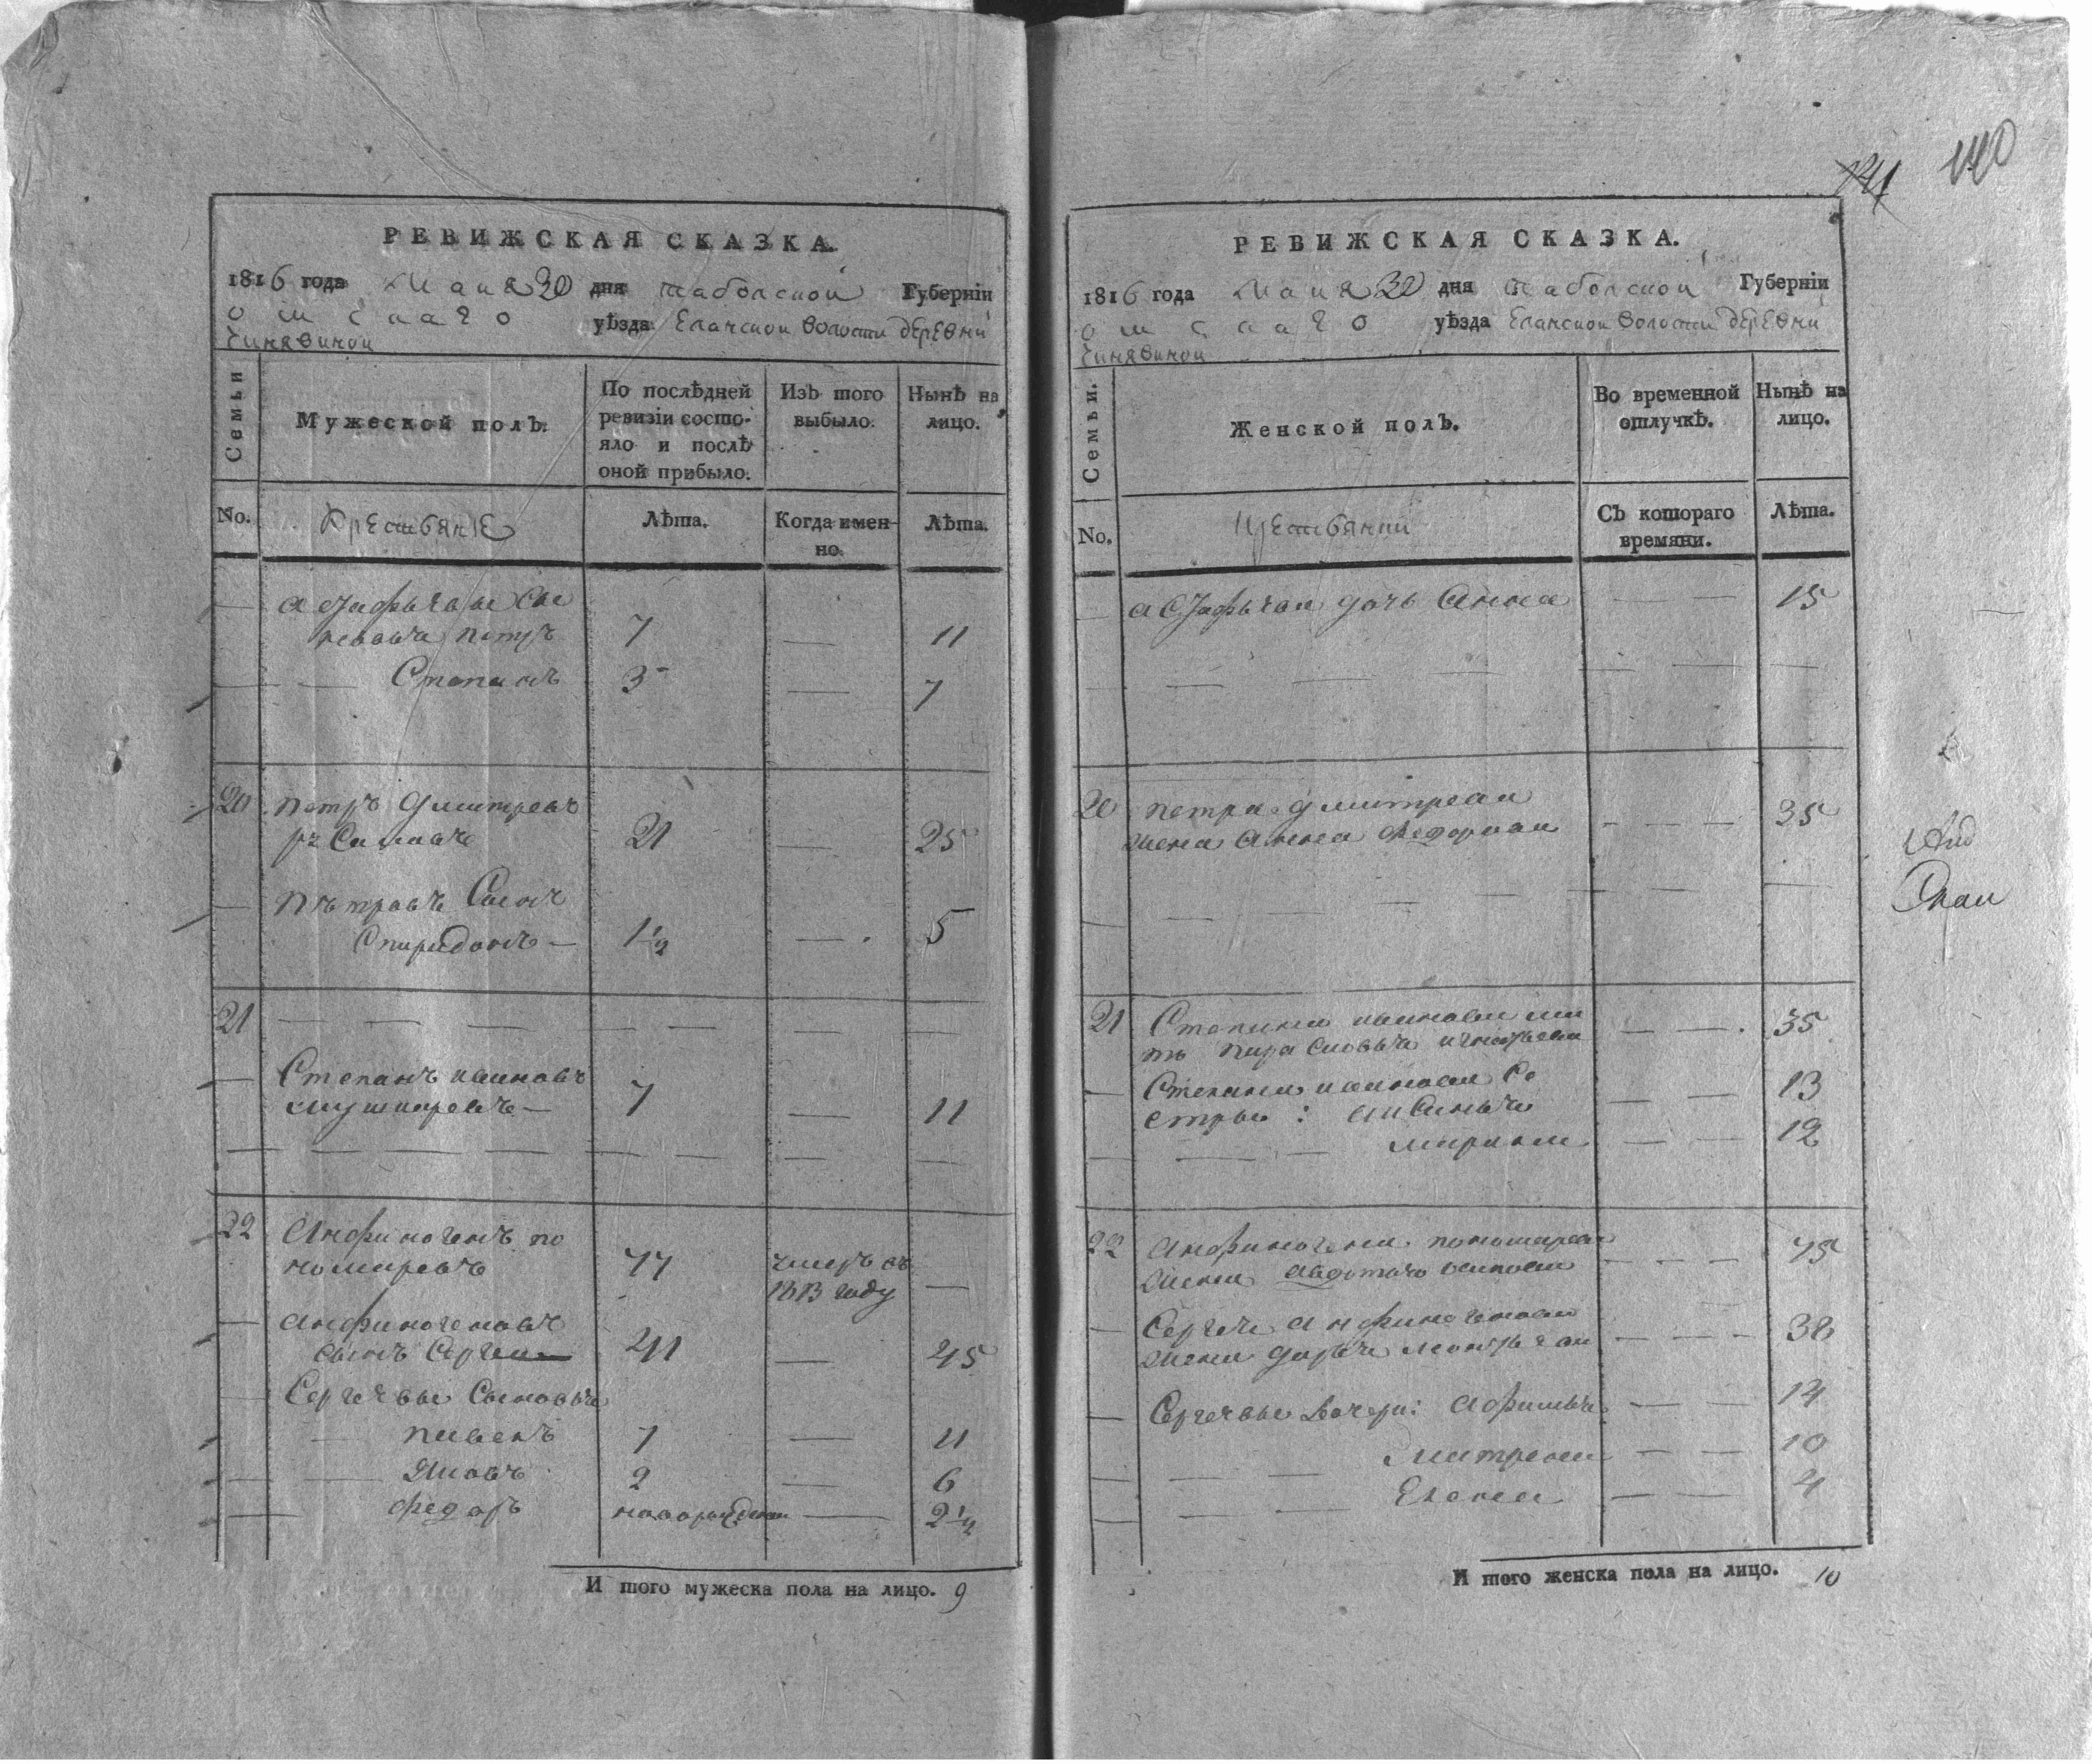 РЕВИЖСКАЯ СКАЗКА.
1816 года Маия 30 дня таболской Губерніи
омскаго уѣзда Еланской волости деревни
Чинявиной
Семьи
Мужеской полъ.
По послѣдней ревизіи состояло и послѣ оной прибыло.
Изъ того выбыло.
Нынѣ на лицо.
No.
Крестьяне
Лѣта.
Когда именно.
Лѣта.
— Петръ 7 — 11
— — Степанъ 3 — 7
20 Петръ Дмитревъ
21 — 25
— Петровъ Сынъ
Спиридонъ — 1 1/2 — 5
21 — — — — — — —
— Степанъ ивановъ
7 — 11
— — — — — — — —
22 Анфиногенъ по
номаревъ 77 умеръ въ
1813 году —
— Анфиногеновъ
сынъ Сергеи 41 — 45
— Сергеевы Сыновья
— павелъ 7 — 11
— — Яковъ 2 — 6
— федоръ новорожден — 2 1/2
И того мужеска пола на лицо. 9
141 140
РЕВИЖСКАЯ СКАЗКА.
1816 года Маия 30 дня таболской Губерніи
омскаго уѣзда Еланской волости деревни
Чинявиной
Семьи.
Женской полъ.
Во временной отлучкѣ.
Нынѣ на лицо.
No.
Крестьянки
Съ котораго времяни.
Лѣта.
— дочь Анна — — 15
— — — — — — —
20 Петра Дмитрева
жена Анна федорова — — — 35
— — — — — — —
21 Степана иванова ма
ть — — 35
— Степана иванова Се
стры: — — 13
— — — марина — — 12
22 Анфиногена пономарева
жена Авдотья — — — 75
— Сергея Анфиногенова
жена дарья — — — 38
— Сергеевы дочери: Афимья — — 14
— — — матрена — — 10
— — — Елена — — 4
И того женска пола на лицо. 10